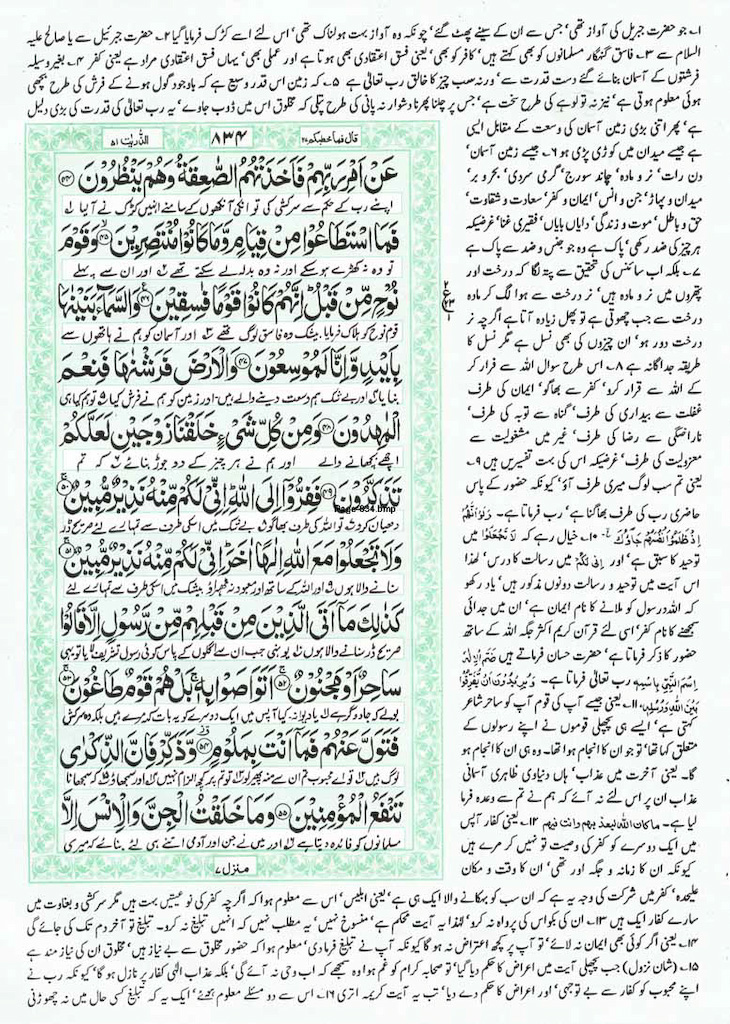 ۱۔ جو حضرت جبریل کی آواز تھی' جس سے ان کے سینے پھٹ گئے' چونکہ وہ آواز بہت ہولناک تھی' اس لئے اسے کڑک فرمایا گیا ۲۔ حضرت جبرئیل سے یا صالح علیہ
السلام سے ۳۔ فاسق گنہگار مسلمانوں کو بھی کہتے ہیں' کافر کو بھی' یعنی فسق اعتقادی بھی ہوتا ہے اور عملی بھی' یہاں فسق اعتقادی مراد ہے یعنی کفر ۴۔ بغیر وسیلہ
فرشتوں کے آسمان بنائے گئے دست قدرت سے' ورنہ سب چیز کا خالق رب تعالیٰ ہے ۵۔ کہ زمین اس قدر وسیع ہے کہ باوجود گول ہونے کے فرش کی طرح بچھی
ہوئی معلوم ہوتی ہے' نیز نہ تو لوہے کی طرح سخت ہے' جس پر چلنا پھرنا دشوار نہ پانی کی طرح پتلی کہ مخلوق اس میں ڈوب جاوے' یہ رب تعالیٰ کی قدرت کی بڑی دلیل
ہے' پھر اتنی بڑی زمین آسمان کی وسعت کے مقابل ایسی
ہے جیسے میدان میں کوڑی پڑی ہو ۶۔ جیسے زمین آسمان'
دن رات' نر و مادہ' چاند سورج' گرمی سردی' بحر و بر'
میدان و پہاڑ' جن و انس' ایمان و کفر' سعادت و شقاوت'
حق و باطل' موت و زندگی' دایاں بایاں' فقیری غنا' غرضیکہ
ہر چیز کی ضد رکھی' پاک ہے وہ جو جنس و ضد سے پاک ہے
۷۔ بلکہ اب سائنس کی تحقیق سے پتہ لگا کہ درخت اور
پتھروں میں نر و مادہ ہیں' نر درخت سے ہوا لگ کر مادہ
درخت سے جب چھوتی ہے تو پھل زیادہ آتا ہے اگرچہ نر
درخت دور ہو' ان چیزوں کی بھی نسل ہے مگر نسل کا
طریقہ جداگانہ ہے ۸۔ اس طرح سوال اللہ سے فرار کر
کے اللہ سے قرار کرو' کفر سے بھاگو' ایمان کی طرف
غفلت سے بیداری کی طرف' گناہ سے توبہ کی طرف'
ناراضگی سے رضا کی طرف' غیر میں مشغولیت سے
معزولیت کی طرف' غرضیکہ اس کی بہت تفسیریں ہیں ۹۔
یعنی تم سب لوگ میری طرف آؤ' کیونکہ حضور کے پاس
حاضری رب کی طرف بھاگنا ہے' رب فرماتا ہے۔ وَلَوْ اَنَّهُمْ
اِذْ ظَلَمُوْٓا اَنْفُسَهُمْ جَآءُوْكَ الخ ۱۰۔ خیال رہے کہ لَا تَجْعَلُوْا میں
توحید کا سبق ہے' اور اِنِّیْ لَكُمْ میں رسالت کا درس' لہٰذا
اس آیت میں توحید و رسالت دونوں مذکور ہیں' یاد رکھو
کہ اللہ رسول کو ملانے کا نام ایمان ہے' ان میں جدائی
سمجھنے کا نام کفر' اسی لئے قرآن کریم اکثر جگہ اللہ کے ساتھ
حضور کا ذکر فرماتا ہے' حضرت حسان فرماتے ہیں ضَمَّ الْاِلٰهُ
اِسْمَ النَّبِیِّ بِاسْمِهٖ رب تعالیٰ فرماتا ہے۔ وَیُرِیْدُوْنَ اَنْ یُّفَرِّقُوْا
بَیْنَ اللهِ وَرُسُلِهٖ ۱۱۔ یعنی جیسے آپ کی قوم آپ کو ساحر شاعر
کہتی ہے' ایسے ہی پچھلی قوموں نے اپنے رسولوں کے
متعلق کہا تھا' تو جو ان کا انجام ہوا تھا۔ وہ ہی ان کا انجام ہو
گا۔ یعنی آخرت میں عذاب' ہاں دنیاوی ظاہری آسمانی
عذاب ان پر اس لئے نہ آئے کہ ہم نے تم سے وعدہ فرما
لیا ہے۔ ماکان الله لیعذبهم وانت فیهم ۱۲۔ یعنی کفار آپس
میں ایک دوسرے کو کفر کی وصیت تو نہیں کر مرے ہیں
کیونکہ ان کا زمانہ و جگہ اور تھی' ان کا وقت و مکان
قال فما خطبکم ۲۷
۸۳۴
الذّٰریٰت ۵۱
عَنْ اَمْرِ رَبِّهِمْ فَاَخَذَتْهُمُ الصّٰعِقَةُ وَهُمْ یَنْظُرُوْنَ ﴿۴۴﴾
اپنے رب کے حکم سے سرکشی کی تو انکی آنکھوں کے سامنے انہیں کڑک نے آ لیا
فَمَا اسْتَطَاعُوْا مِنْ قِیَامٍ وَّمَا كَانُوْا مُنْتَصِرِیْنَ ﴿۴۵﴾ وَقَوْمَ
تو وہ نہ کھڑے ہو سکے اور نہ وہ بدلہ لے سکتے تھے اور ان سے پہلے
نُوْحٍ مِّنْ قَبْلُ اِنَّهُمْ كَانُوْا قَوْمًا فٰسِقِیْنَ ﴿۴۶﴾ وَالسَّمَآءَ بَنَیْنٰهَا
قوم نوح کو ہلاک فرمایا بیشک وہ فاسق لوگ تھے اور آسمان کو ہم نے ہاتھوں سے
بِاَیْىدٍ وَّاِنَّا لَمُوْسِعُوْنَ ﴿۴۷﴾ وَالْاَرْضَ فَرَشْنٰهَا فَنِعْمَ
بنایا اور بے شک ہم وسعت دینے والے ہیں۔ اور زمین کو ہم نے فرش کیا تو ہم کیا ہی
الْمٰهِدُوْنَ ﴿۴۸﴾ وَمِنْ كُلِّ شَیْءٍ خَلَقْنَا زَوْجَیْنِ لَعَلَّكُمْ
اچھے بچھانے والے اور ہم نے ہر چیز کے دو جوڑ بنائے کہ تم
تَذَكَّرُوْنَ ﴿۴۹﴾ فَفِرُّوْٓا اِلَى اللهِ اِنِّیْ لَكُمْ مِّنْهُ نَذِیْرٌ مُّبِیْنٌ ﴿۵۰﴾
Page-834.bmp
دھیان کرو تو اللہ کی طرف بھاگو بے شک میں اسکی طرف سے تمہارے لئے صریح ڈر
وَلَا تَجْعَلُوْا مَعَ اللهِ اِلٰهًا اٰخَرَ اِنِّیْ لَكُمْ مِّنْهُ نَذِیْرٌ مُّبِیْنٌ ﴿۵۱﴾
سنانے والا ہوں اور اللہ کے ساتھ اور معبود نہ ٹھہراؤ بیشک میں اسکی طرف سے تمہارے لئے
كَذٰلِكَ مَآ اَتَى الَّذِیْنَ مِنْ قَبْلِهِمْ مِّنْ رَّسُوْلٍ اِلَّا قَالُوْا
صریح ڈر سنانے والا ہوں یونہی جب ان سے اگلوں کے پاس کوئی رسول تشریف لایا تو یہی
سَاحِرٌ اَوْ مَجْنُوْنٌ ﴿۵۲﴾ اَتَوَاصَوْا بِهٖ بَلْ هُمْ قَوْمٌ طَاغُوْنَ ﴿۵۳﴾
بولے کہ جادوگر ہے یا دیوانہ کیا آپس میں ایک دوسرے کو یہ بات کہہ مرے ہیں بلکہ وہ سرکش
فَتَوَلَّ عَنْهُمْ فَمَآ اَنْتَ بِمَلُوْمٍ ﴿۵۴﴾ وَّذَكِّرْ فَاِنَّ الذِّكْرٰى
لوگ ہیں تو اے محبوب تم ان سے منہ پھیر لو تو تم پر کچھ الزام نہیں اور سمجھاؤ کہ سمجھانا
تَنْفَعُ الْمُؤْمِنِیْنَ ﴿۵۵﴾ وَمَا خَلَقْتُ الْجِنَّ وَالْاِنْسَ اِلَّا
مسلمانوں کو فائدہ دیتا ہے اور میں نے جن اور آدمی اتنے ہی لئے بنائے کہ میری
منزل ۷
علیحدہ' کفر میں شرکت کی وجہ یہ ہے کہ ان سب کو بہکانے والا ایک ہی ہے' یعنی ابلیس' اس سے معلوم ہوا کہ اگرچہ کفر کی نوعیتیں بہت ہیں مگر سرکشی و بغاوت میں
سارے کفار ایک ہیں ۱۳۔ ان کی بکواس کی پرواہ نہ کرو' لہٰذا یہ آیت محکم ہے' منسوخ نہیں' یہ مطلب نہیں کہ انہیں تبلیغ نہ کرو۔ تبلیغ تو آخر دم تک کی جائے گی
۱۴۔ یعنی اگر کوئی بھی ایمان نہ لائے' تو آپ پر کچھ اعتراض نہ ہو گا کیونکہ آپ نے تبلیغ فرما دی' معلوم ہوا کہ حضور مخلوق سے بے نیاز ہیں' مخلوق ان کی نیاز مند ہے
۱۵۔ (شان نزول) جب پچھلی آیت میں اعراض کا حکم دیا گیا' تو صحابہ کرام کو غم ہوا وہ سمجھے کہ اب وحی نہ آئے گی' بلکہ عذاب الٰہی کفار پر نازل ہو گا' کیونکہ رب نے
اپنے محبوب کو کفار سے بے توجہی' اور اعراض کا حکم دے دیا' تب یہ آیت کریمہ اتری ۱۶۔ اس سے دو مسئلے معلوم ہوئے' ایک یہ کہ تبلیغ کسی حال میں نہ چھوڑنی